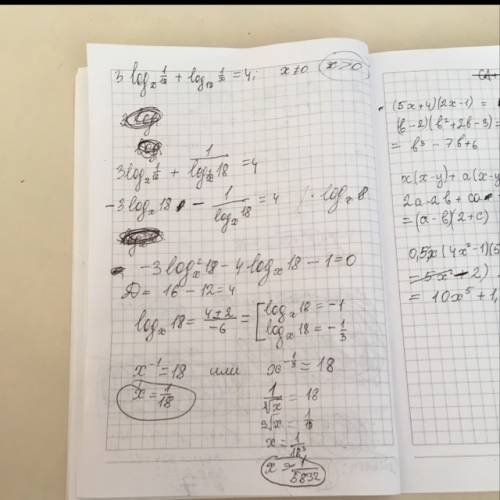 3 log_x 1/18 + log_18 1/x = 4; x ≠ 0 x > 0
3 log_x 1/18 + 1/log_x 18 = 4
-3 log_x 18 - 1/log_x 18 = 4 | · log_x 18
-3 log²_x 18 - 4 log_x 18 - 1 = 0
D = 16 - 12 = 4
log_x 18 = (4 ± 2)/-6 = [ log_x 18 = -1
log_x 18 = -1/3
x^-1 = 18 или x^-1/3 = 18
x = 1/18
1/∛x = 18
∛x = 1/18
x = 1/18³
x = 1/5832
(5x+4)(2x-1) =
(b-2)(b²+2b-3) =
= b³ - 7b + 6
x(x-y) + a(x-y
2a - ab +
= (a-b)(2+c)
0,5x(4x²-1)(5
= 10x⁵ + 1,